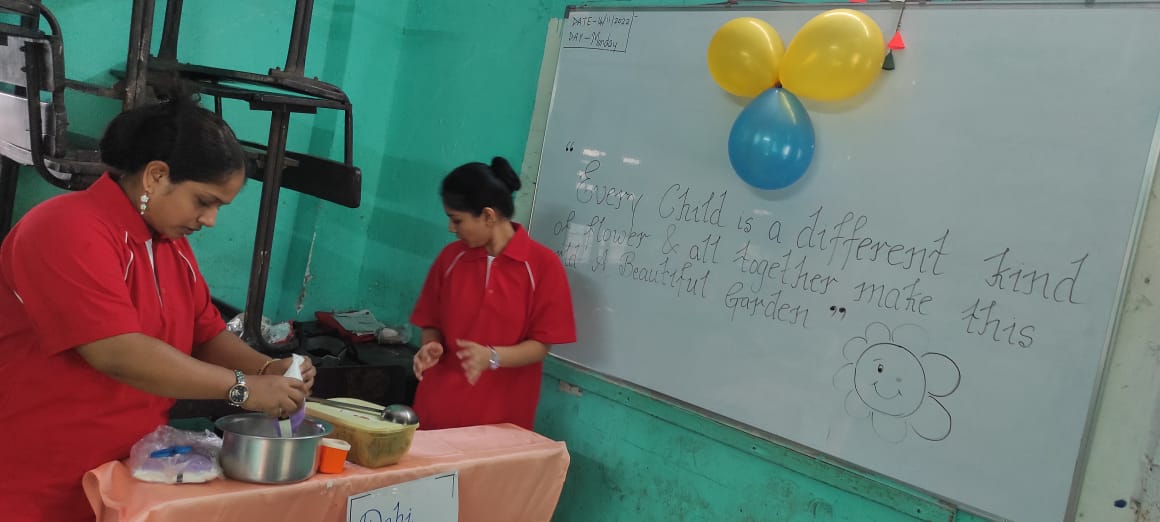 DATE-14/11/2022/-
DAY-Monday
"Every Child is a different kind
of flower & all together make this
A Beautiful Garden"
Dahi